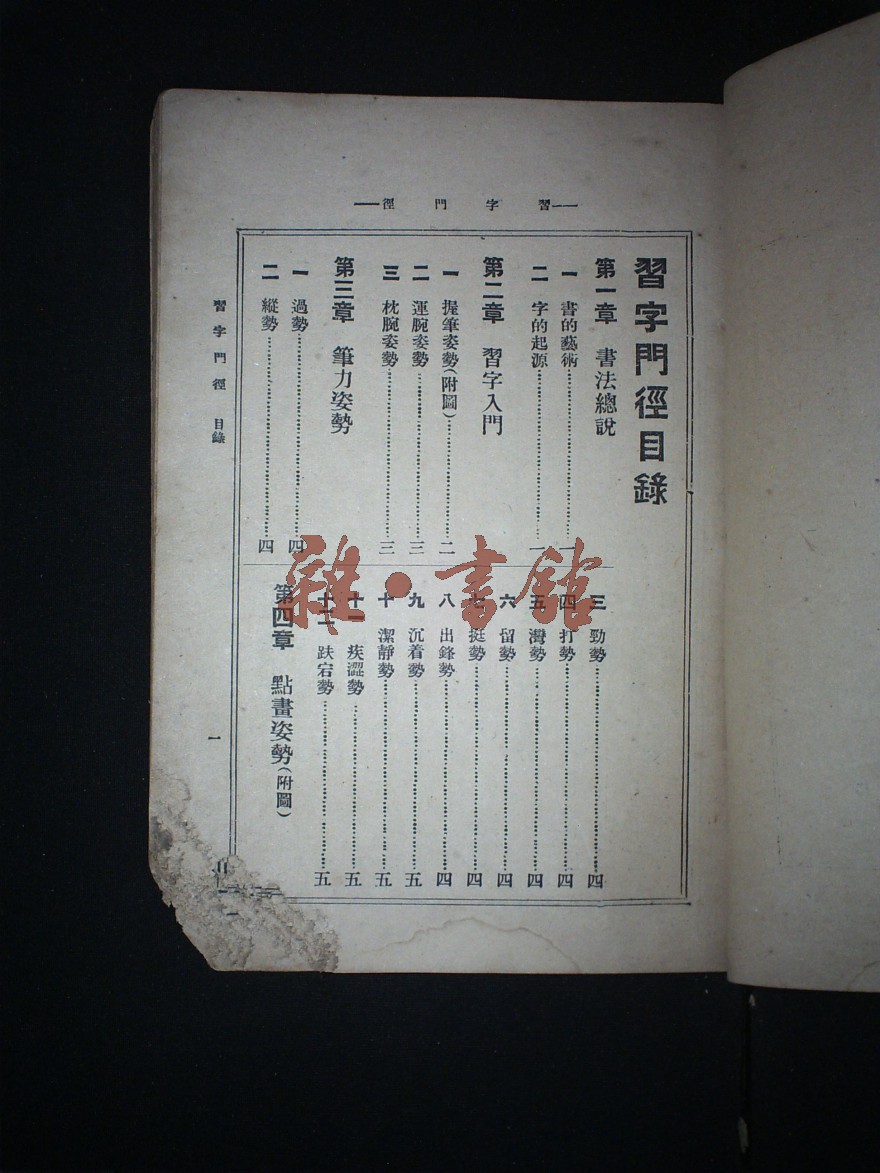 習字門徑
習字門徑目錄
第一章 書法總說
一 書的藝術……一
二 字的起源……一
第二章 習字入門
一 握筆姿勢(附圖)……二
二 運腕姿勢……三
三 枕腕姿勢……三
第三章 筆力姿勢
一 過勢……四
二 縱勢……四
三 勁勢……四
四 打勢……四
五 灣勢……四
六 留勢……四
七 挺勢……四
八 出鋒勢……四
九 沉着勢……五
十 潔靜勢……五
十一 疾澀勢……五
十二 趺宕勢……五
第四章 點畫姿勢(附圖)
習字門徑 目錄
一
雜·書館